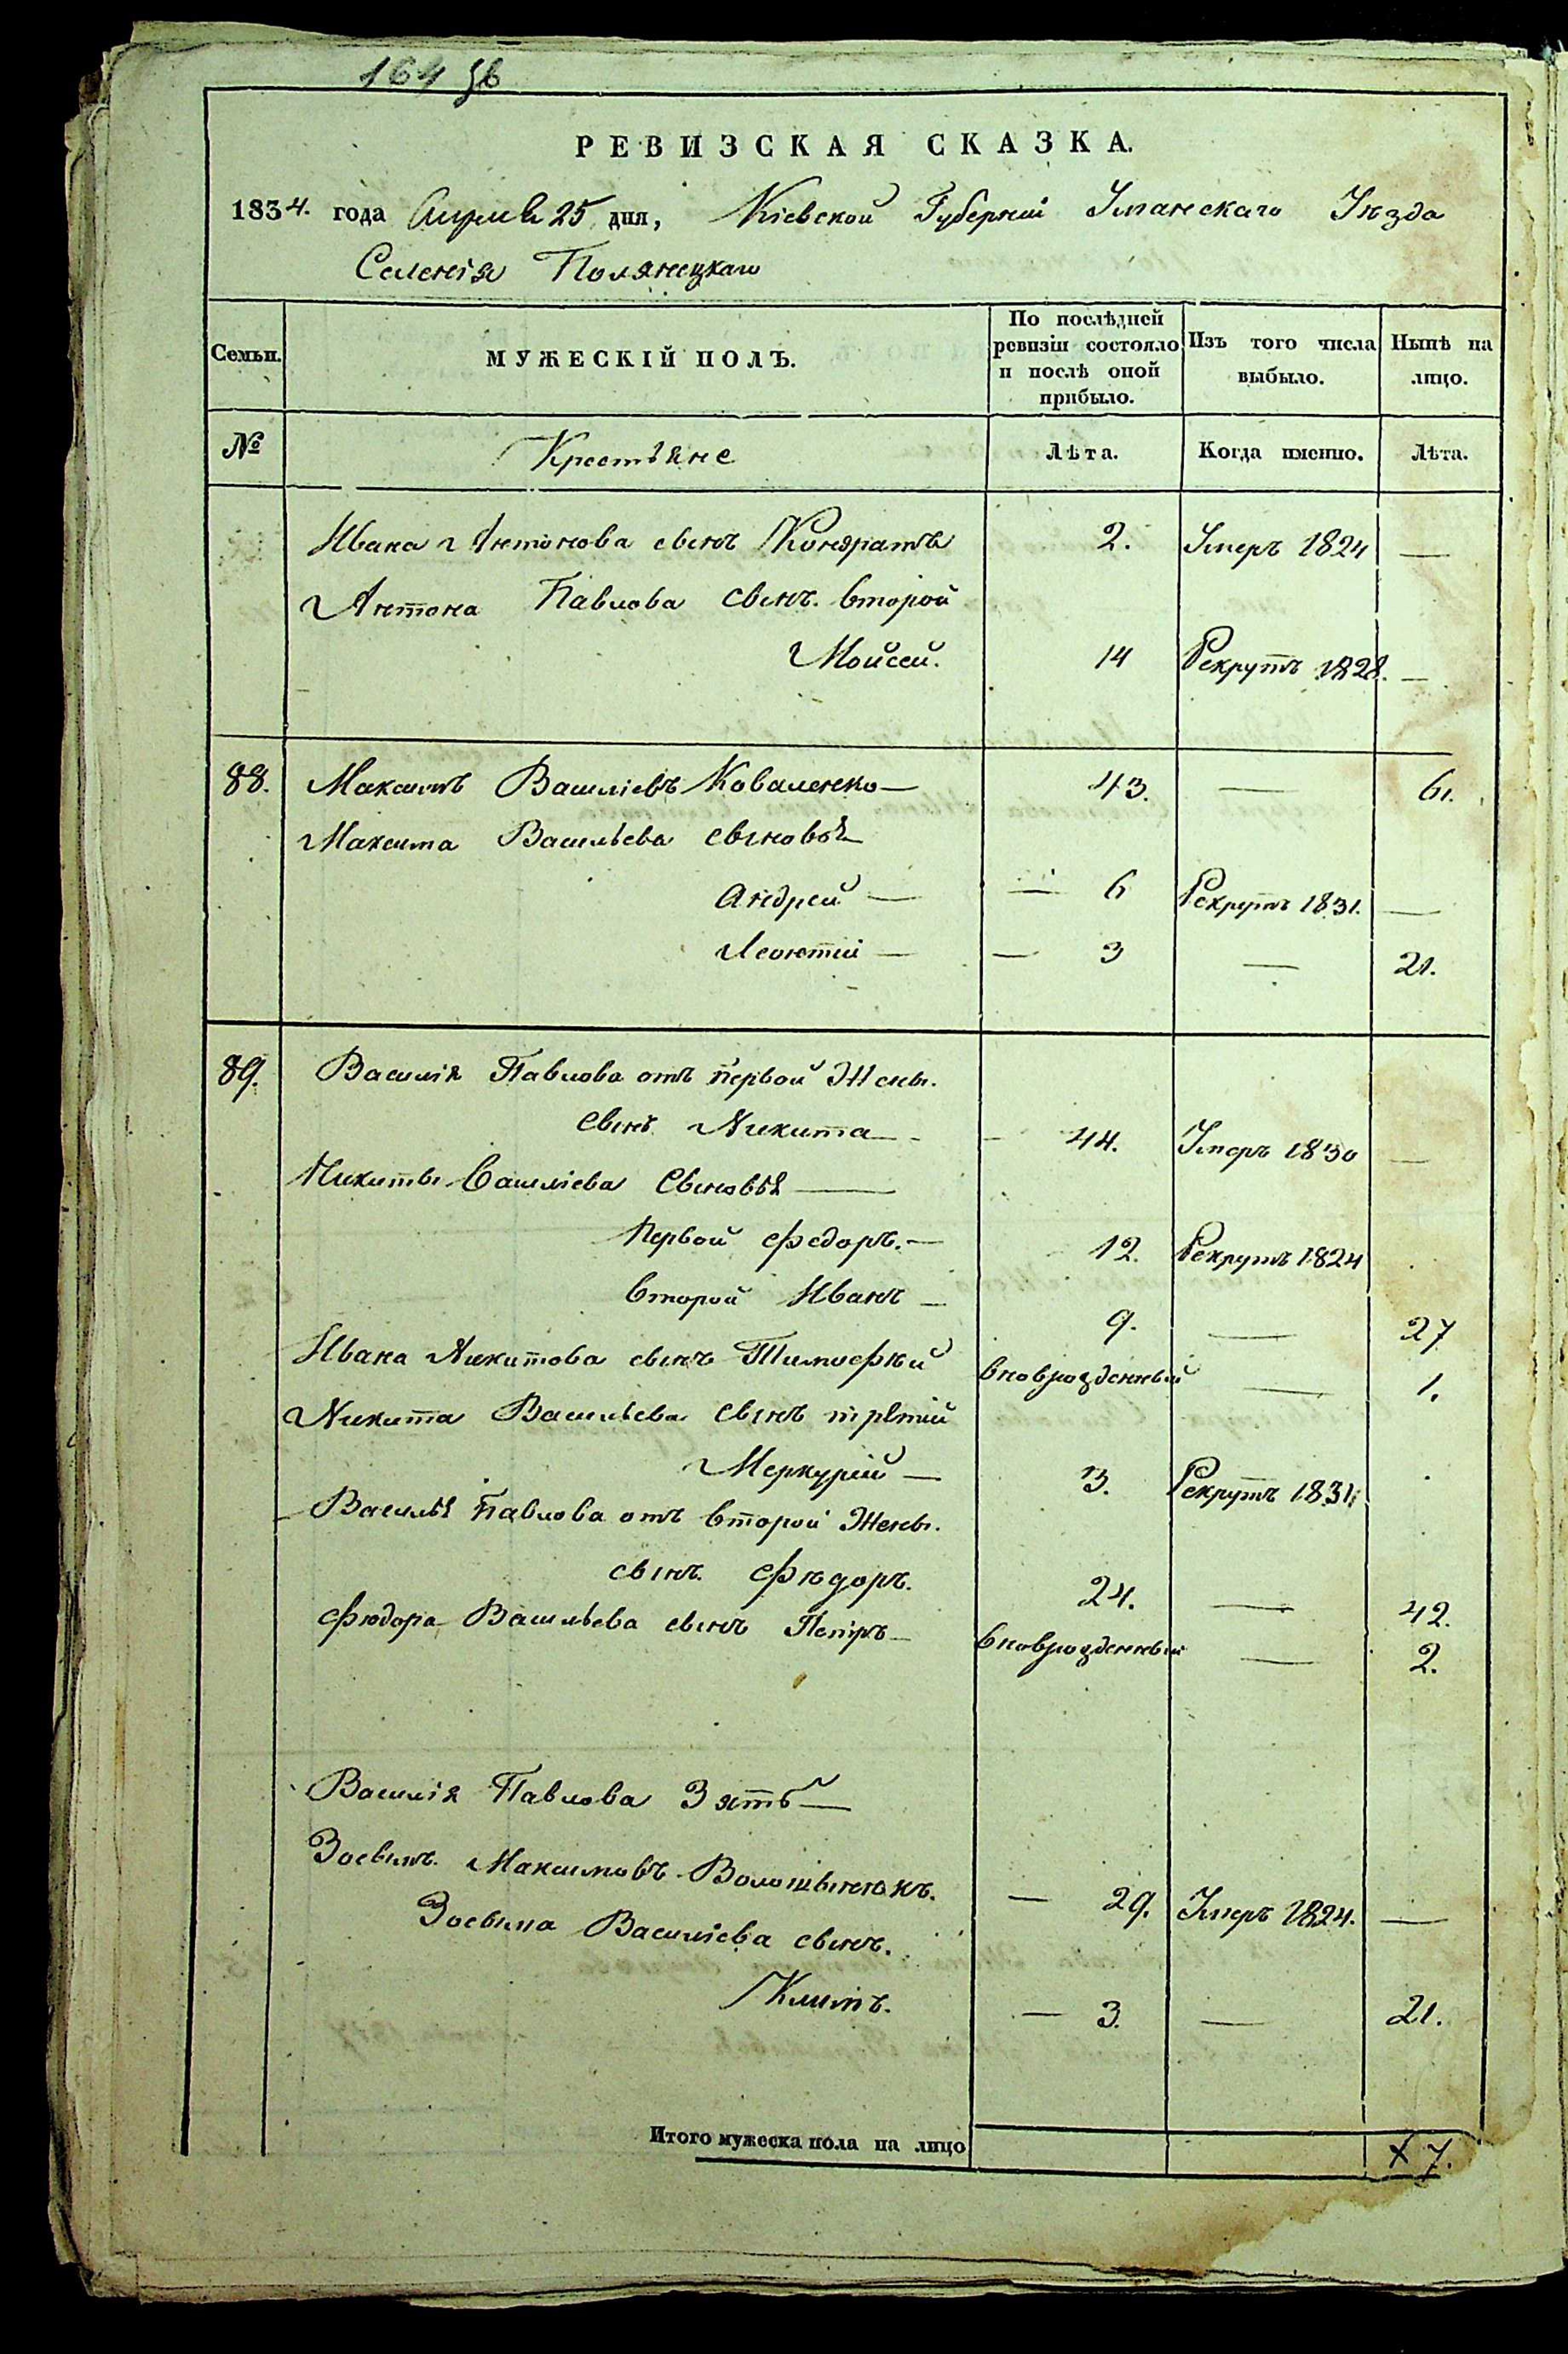 164 об
РЕВИЗСКАЯ СКАЗКА.
1834. года Апреля 25 дня, Кіевской Губерніи Уманскаго Уезда
Селенія Полянецкаго
Семьи. МУЖЕСКІЙ ПОЛЪ. По послѣдней ревизіи состояло и послѣ оной прибыло. Изъ того числа выбыло. Нынѣ на лицо.
№ Крестьяне Лѣта. Когда именно. Лѣта.
Ивана Антонова сынъ Кондратъ 2. Умеръ 1824 —
Антона Павлова сынъ второй
Мойсей. 14 Рекрутъ 1828. —
88. Максимъ Василіевъ Коваленко — 43. — 61.
Максима Васильева сыновья
Андрей — — 6 Рекрутъ 1831. —
Леонтій — — 3 — 21.
89. Василія Павлова отъ первой Жены.
сынъ Никита — 44. Умеръ 1830 —
Никиты Василіева Сыновья —
Первой Федоръ. — 12. Рекрутъ 1824
второй Иванъ — 9. — 27
Ивана Никитова сынъ Тимофѣй вноврожденный — 1.
Никита Васильева сынъ третій
Меркурій — 3. Рекрутъ 1831.
Василья Павлова отъ второй Жены.
сынъ Фѣдоръ. 24. — 42.
Фюдора Васильева сынъ Петръ — вноврожденный — 2.
Василія Павлова Зять —
Зосимъ Максимовъ Волошынюкъ. — 29. Умеръ 1824. —
Зосыма Василіева сынъ.
Климъ. — 3. — 21.
Итого мужеска пола на лицо х 7.